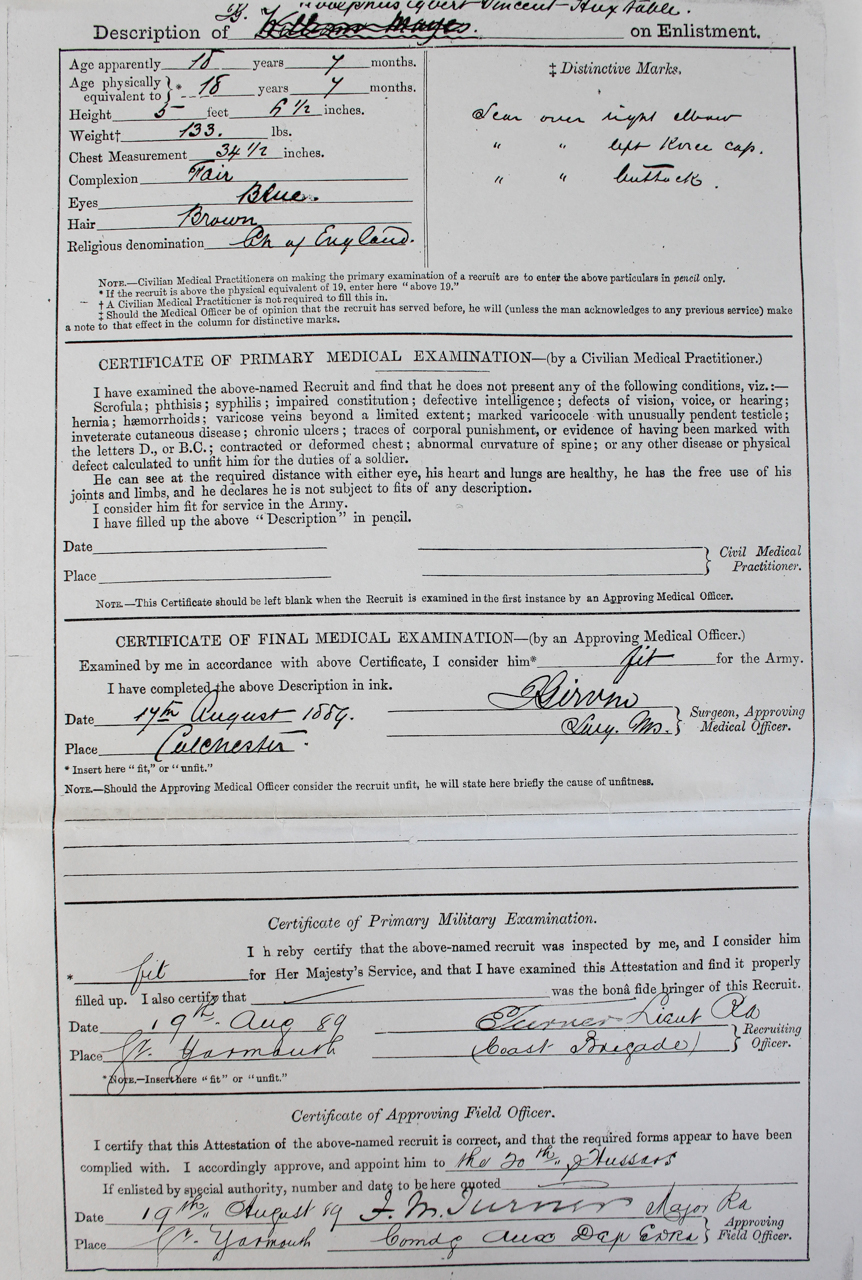 Vincent-Huxtable.
Description of William Mayes. on Enlistment.
Age apparently 18 years 7 months.
Age physically equivalent to } * 18 years 7 months.
Height 5 feet 6 1/2 inches.
Weight† 133. lbs.
Chest Measurement 34 1/2 inches.
Complexion Fair
Eyes Blue.
Hair Brown
Religious denomination Ch of England.
‡ Distinctive Marks.
Scar over right elbow
" " left Knee cap.
" " buttock.
NOTE.—Civilian Medical Practitioners on making the primary examination of a recruit are to enter the above particulars in pencil only.
* If the recruit is above the physical equivalent of 19, enter here "above 19."
† A Civilian Medical Practitioner is not required to fill this in.
‡ Should the Medical Officer be of opinion that the recruit has served before, he will (unless the man acknowledges to any previous service) make
a note to that effect in the column for distinctive marks.
CERTIFICATE OF PRIMARY MEDICAL EXAMINATION—(by a Civilian Medical Practitioner.)
I have examined the above-named Recruit and find that he does not present any of the following conditions, viz.:—
Scrofula; phthisis; syphilis; impaired constitution; defective intelligence; defects of vision, voice, or hearing;
hernia; hæmorrhoids; varicose veins beyond a limited extent; marked varicocele with unusually pendent testicle;
inveterate cutaneous disease; chronic ulcers; traces of corporal punishment, or evidence of having been marked with
the letters D., or B.C.; contracted or deformed chest; abnormal curvature of spine; or any other disease or physical
defect calculated to unfit him for the duties of a soldier.
He can see at the required distance with either eye, his heart and lungs are healthy, he has the free use of his
joints and limbs, and he declares he is not subject to fits of any description.
I consider him fit for service in the Army.
I have filled up the above "Description" in pencil.
Date
Place
} Civil Medical Practitioner.
NOTE.—This Certificate should be left blank when the Recruit is examined in the first instance by an Approving Medical Officer.
CERTIFICATE OF FINAL MEDICAL EXAMINATION—(by an Approving Medical Officer.)
Examined by me in accordance with above Certificate, I consider him* fit for the Army.
I have completed the above Description in ink.
Date 17th August 1889.
Surg. Ms. } Surgeon, Approving Medical Officer.
Place Colchester.
* Insert here "fit," or "unfit."
NOTE.—Should the Approving Medical Officer consider the recruit unfit, he will state here briefly the cause of unfitness.
Certificate of Primary Military Examination.
I h reby certify that the above-named recruit was inspected by me, and I consider him
* fit for Her Majesty's Service, and that I have examined this Attestation and find it properly
filled up. I also certify that was the bonâ fide bringer of this Recruit.
Date 19th Aug 89 Turner Lieut Ra
Place Gt. Yarmouth (Coast Brigade) } Recruiting Officer.
* NOTE.—Insert here "fit" or "unfit."
Certificate of Approving Field Officer.
I certify that this Attestation of the above-named recruit is correct, and that the required forms appear to have been
complied with. I accordingly approve, and appoint him to the 20th Hussars
If enlisted by special authority, number and date to be here quoted
Date 19th August 89 J. M. Turner Major Ra
Place Gt. Yarmouth Comdg Aux Dep } Approving Field Officer.